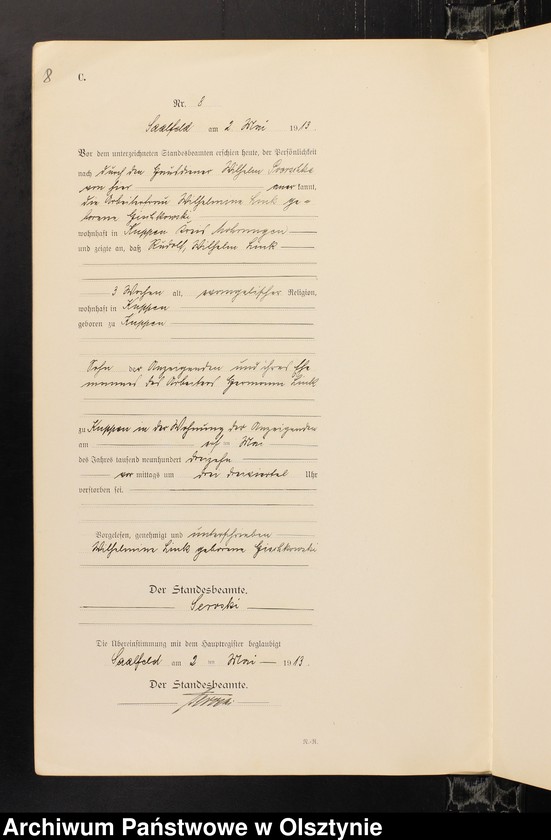 8
C.
Nr. 8
Saalfeld am 2 Mai 1913.
Vor dem unterzeichneten Standesbeamten erschien heute, der Persönlichkeit
nach durch den Wilhelm
von hier anerkannt,
die Arbeiterfrau Wilhelmine Link ge-
borene
wohnhaft in Kuppen Kreis Mohrungen
und zeigte an, daß Rudolf, Wilhelm Link
3 Wochen alt, evangelischer Religion,
wohnhaft in Kuppen
geboren zu Kuppen
Sohn der Anzeigenden und ihres Ehe
mannes des Arbeiters Hermann Link
zu Kuppen in der Wohnung der Anzeigenden
am Mai
des Jahres tausend neunhundert dreizehn
vor mittags um drei dreiviertel Uhr
verstorben sei.
Vorgelesen, genehmigt und unterschrieben
Wilhelmine Link geborene
Der Standesbeamte.
Die Übereinstimmung mit dem Hauptregister beglaubigt
Saalfeld am 2 Mai 1913.
Der Standesbeamte.
Archiwum Państwowe w Olsztynie